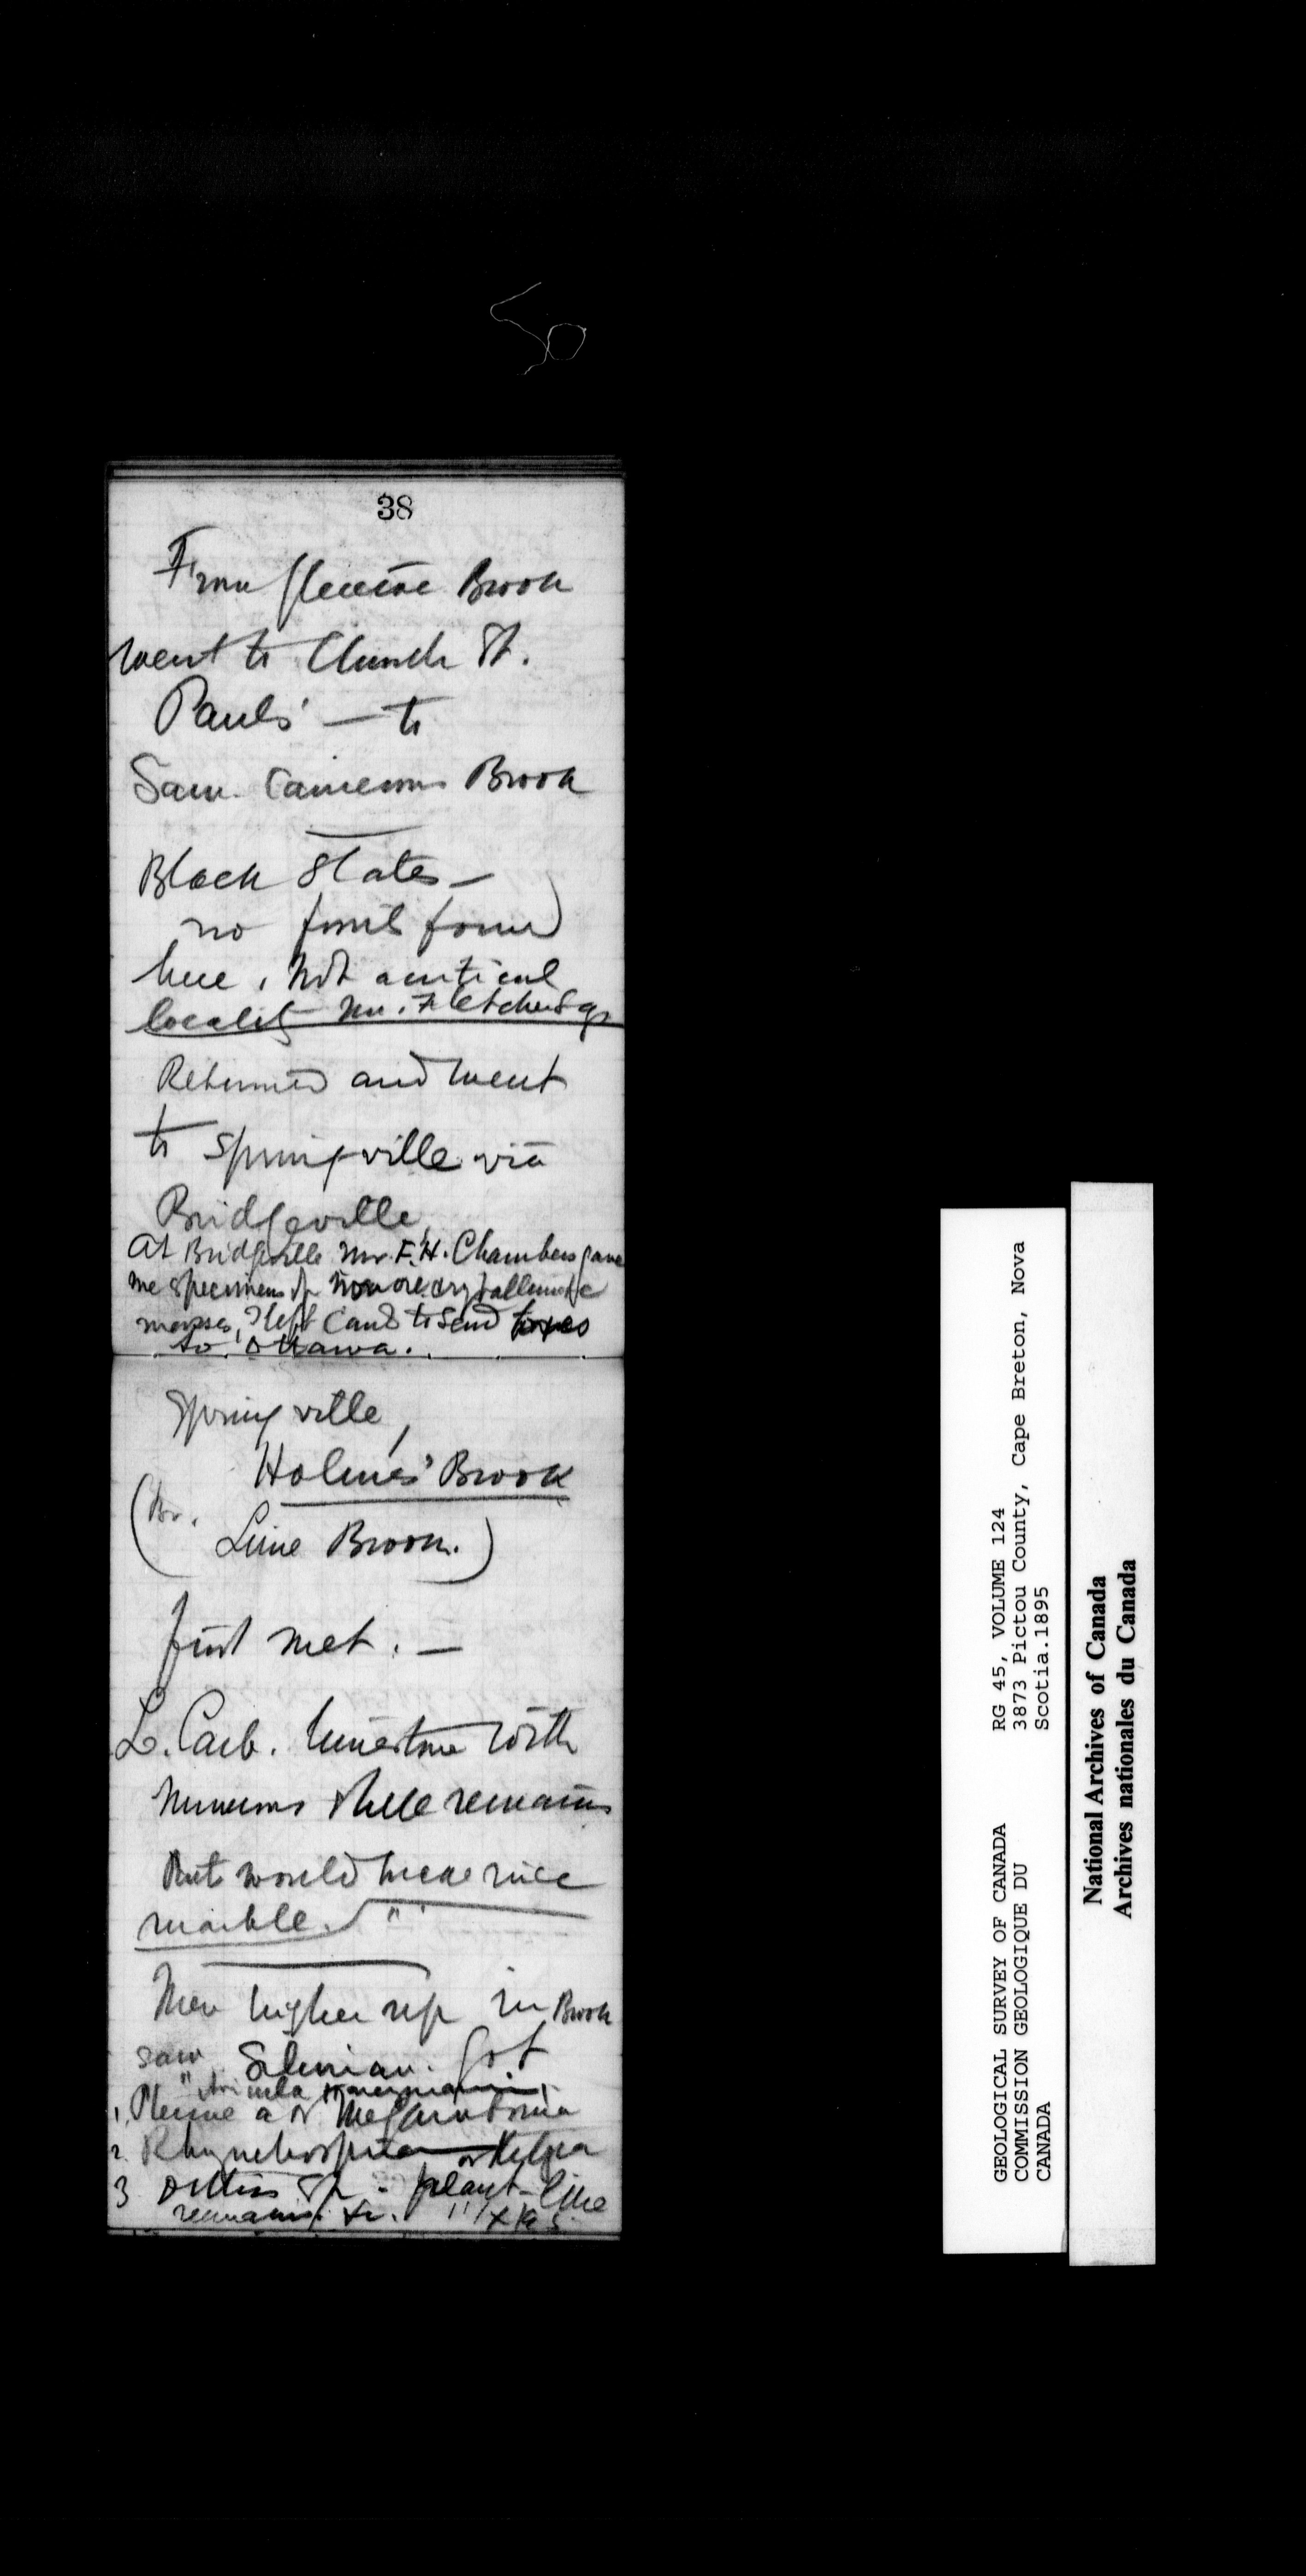 50
38
From Brook
went to Church St.
Pauls' — to
Sam. Camerons Brook
Black Slates —
no fossils found
here. Not a critical
locality Mr. Fletcher says
Returned and went
to Springville via
Bridgeville,
At Bridgeville Mr. F. H. Chambers gave
me specimens of iron ore crystalline &c
masses, I left Cards to send boxes
to Ottawa.
Springville,
Holmes' Brook
(Br.
Lime Brook.)
first met. —
L. Carb. limestone with
numerous shell remains
But would make nice
marble.
Then higher up in Brook
saw Silurian. Got
1, or Megambonia
2 or
3 Orthis sp. plant-like
remains. &c.
GEOLOGICAL SURVEY OF CANADA
COMMISSION GEOLOGIQUE DU
CANADA
RG 45, VOLUME 124
3873 Pictou County, Cape Breton, Nova
Scotia.1895
National Archives of Canada
Archives nationales du Canada